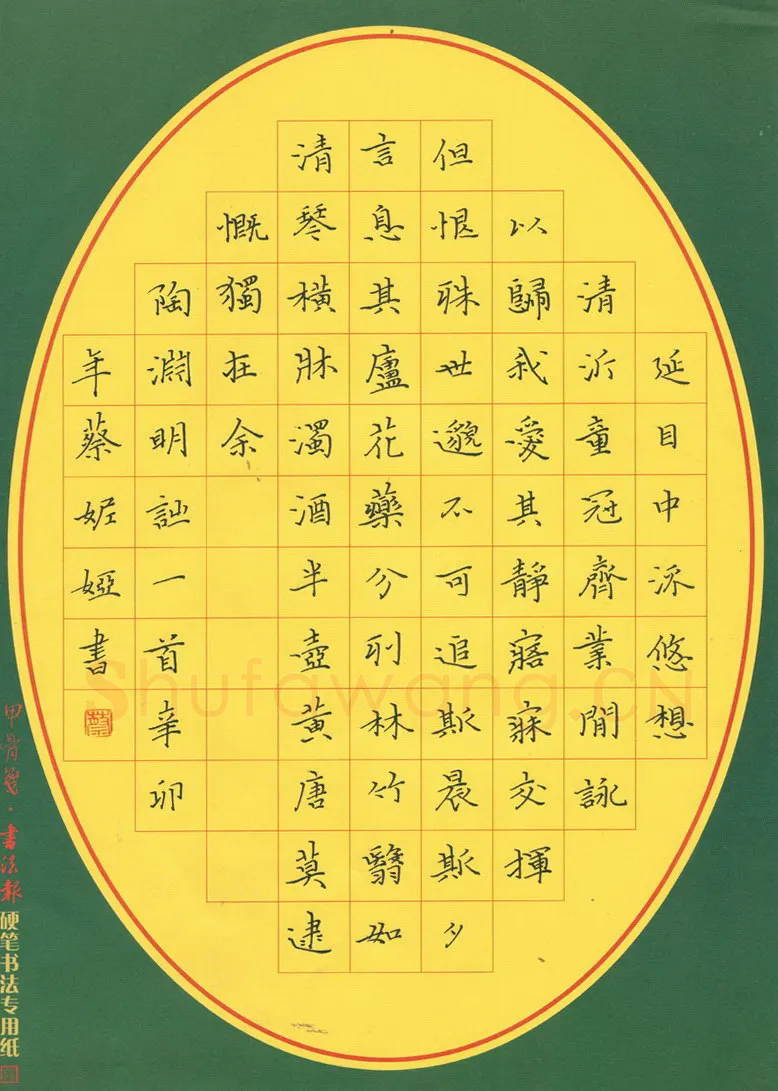 延目中流悠想
清沂童冠齊業閒詠
以歸我愛其靜寤寐交揮
但恨殊世邈不可追斯晨斯夕
言息其廬花藥分列林竹翳如
清琴橫牀濁酒半壺黃唐莫逮
慨獨在余
陶淵明詩一首辛卯
年蔡妮婭書
蔡
甲骨笺·書法報
硬笔书法专用纸
Shufawang.CN